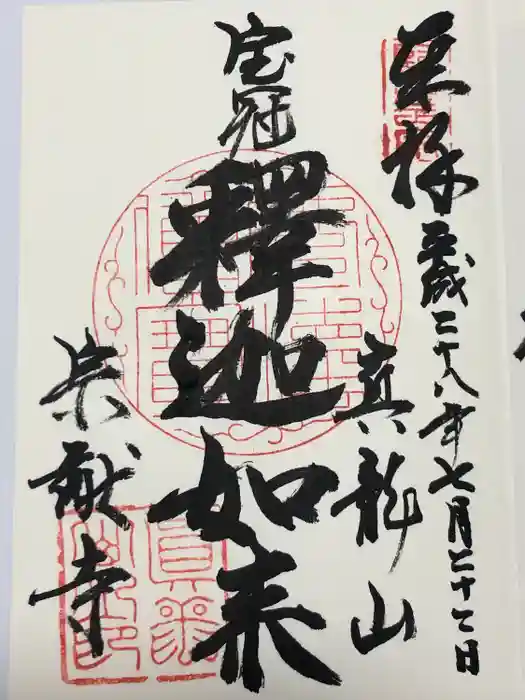 奉拝
平成二十八年七月二十七日
真龍山
宝冠
釋迦如来
宗猷寺